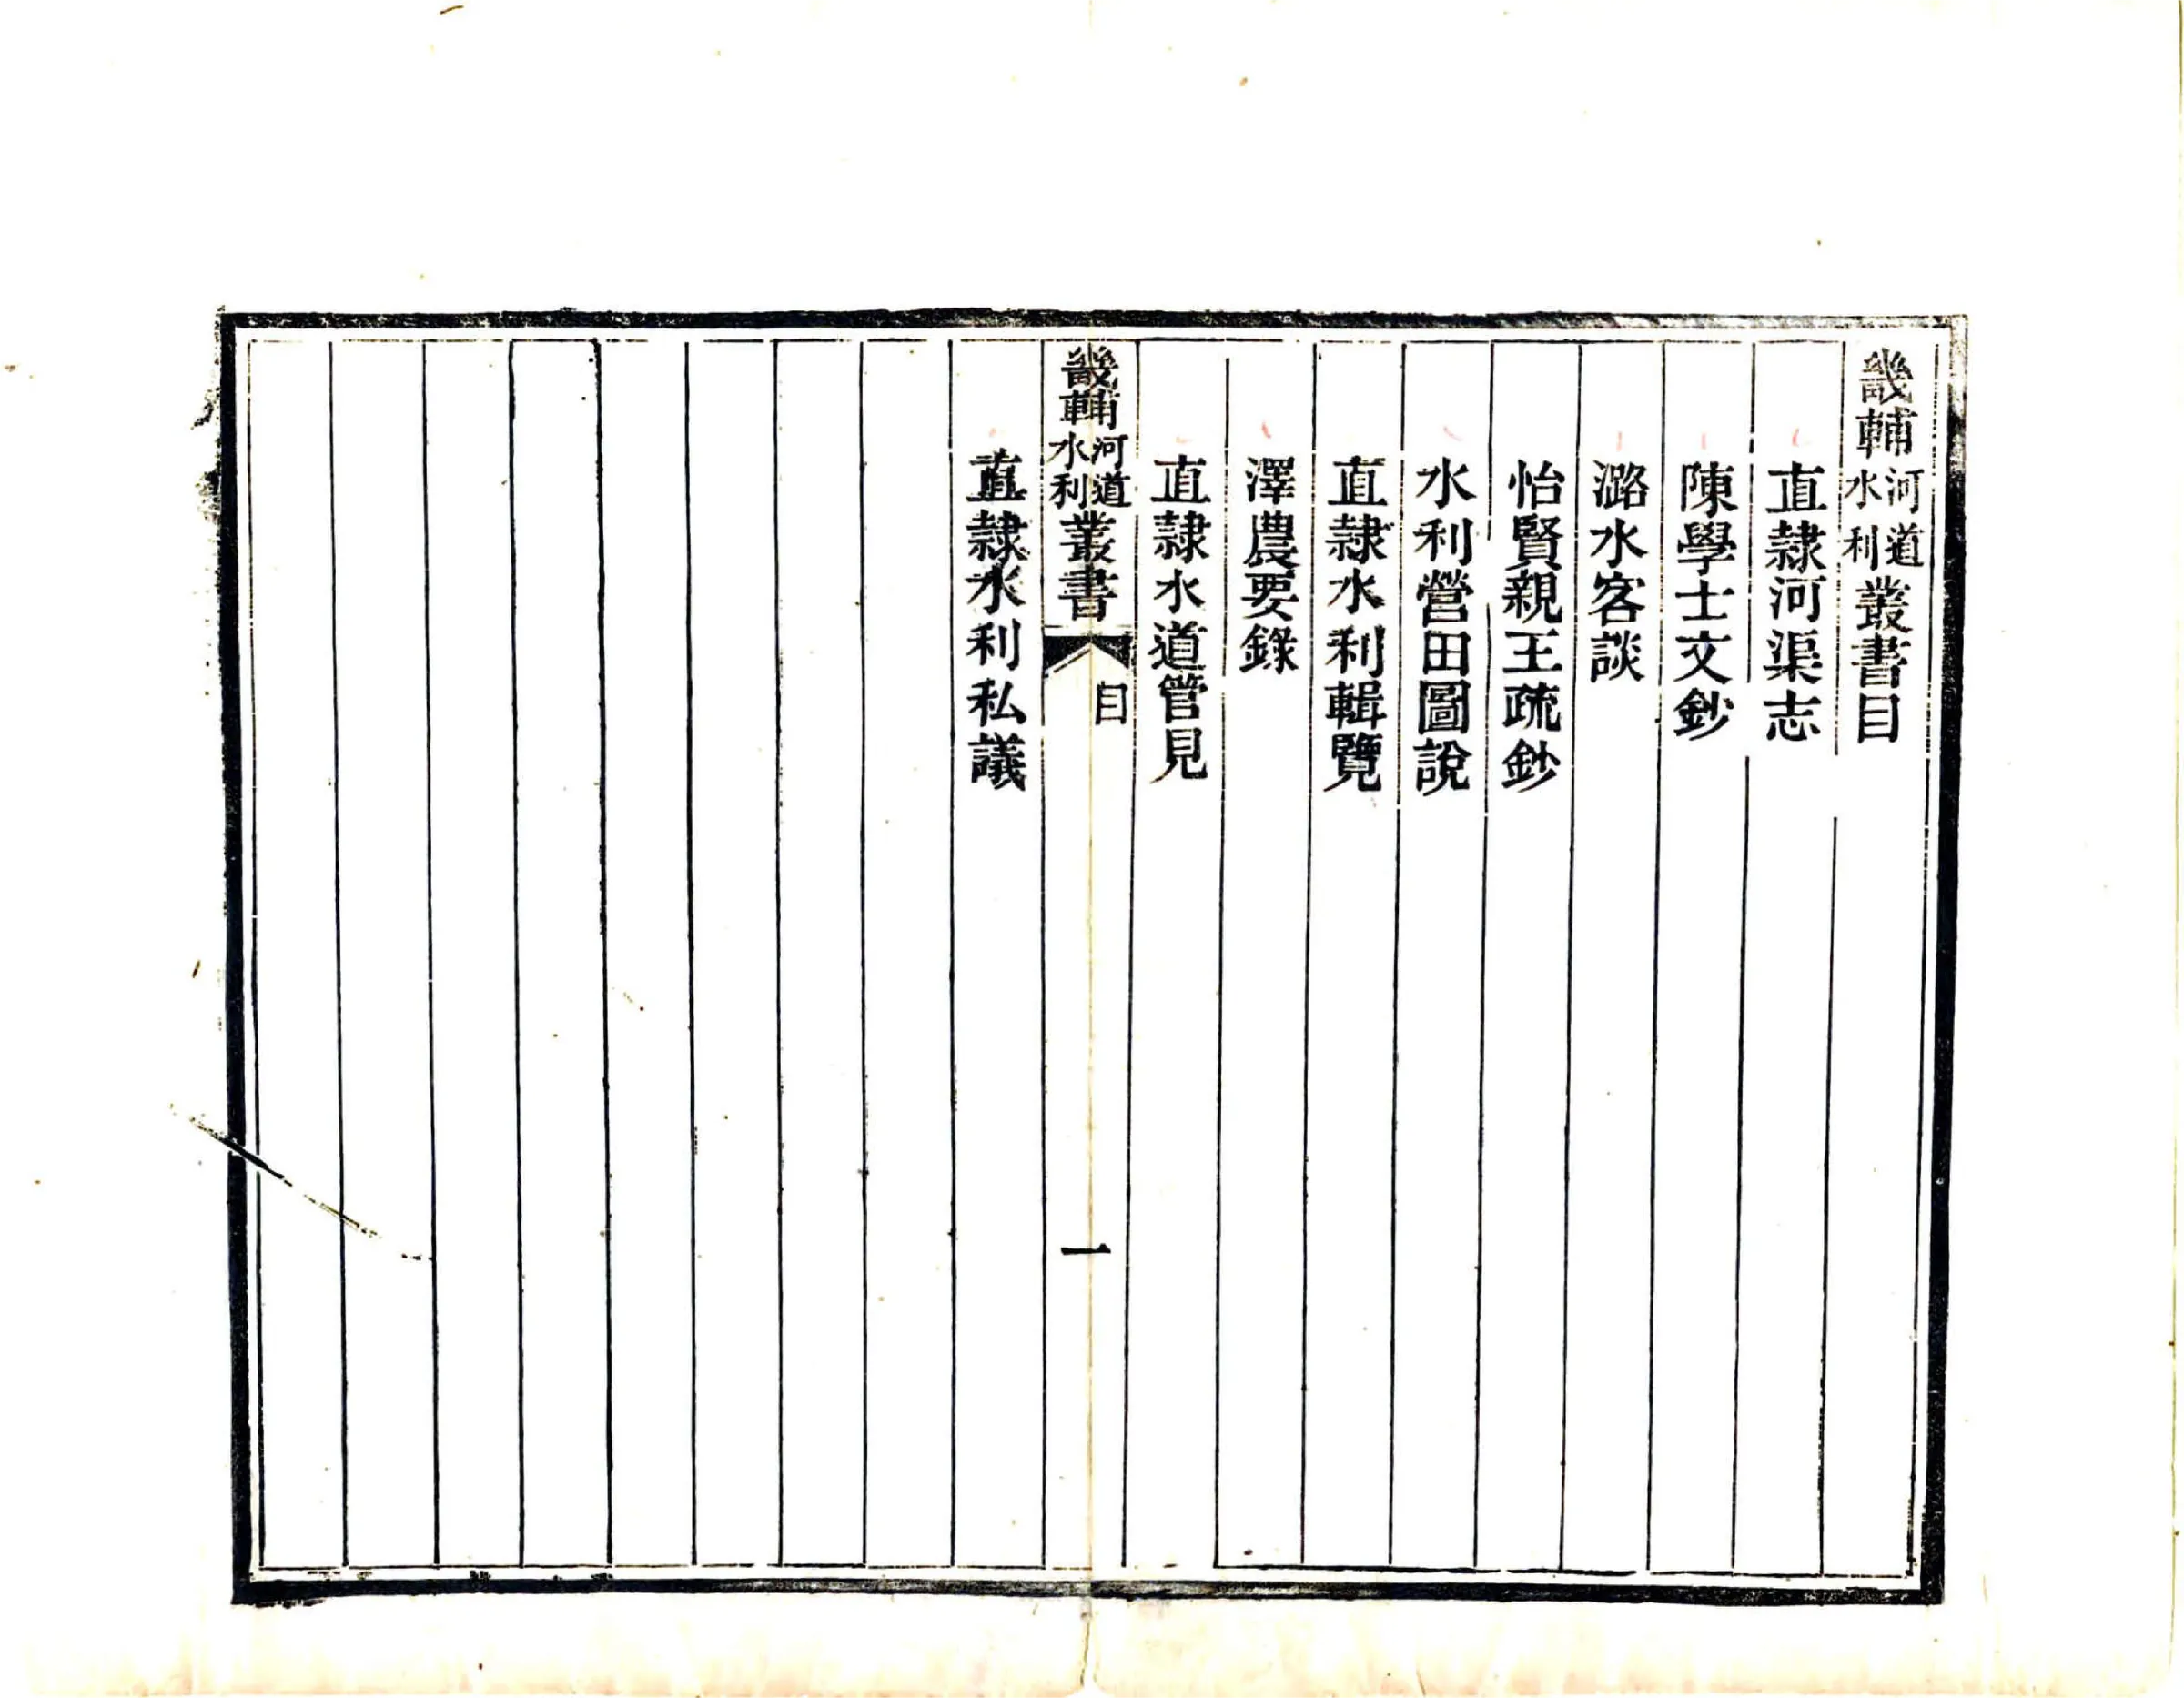 畿輔河道水利叢書目
直隸河渠志
陳學士文鈔
潞水客談
怡賢親王疏鈔
水利營田圖說
直隸水利輯覽
澤農要錄
直隸水道管見
畿輔河道水利叢書 目 一
直隸水利私議